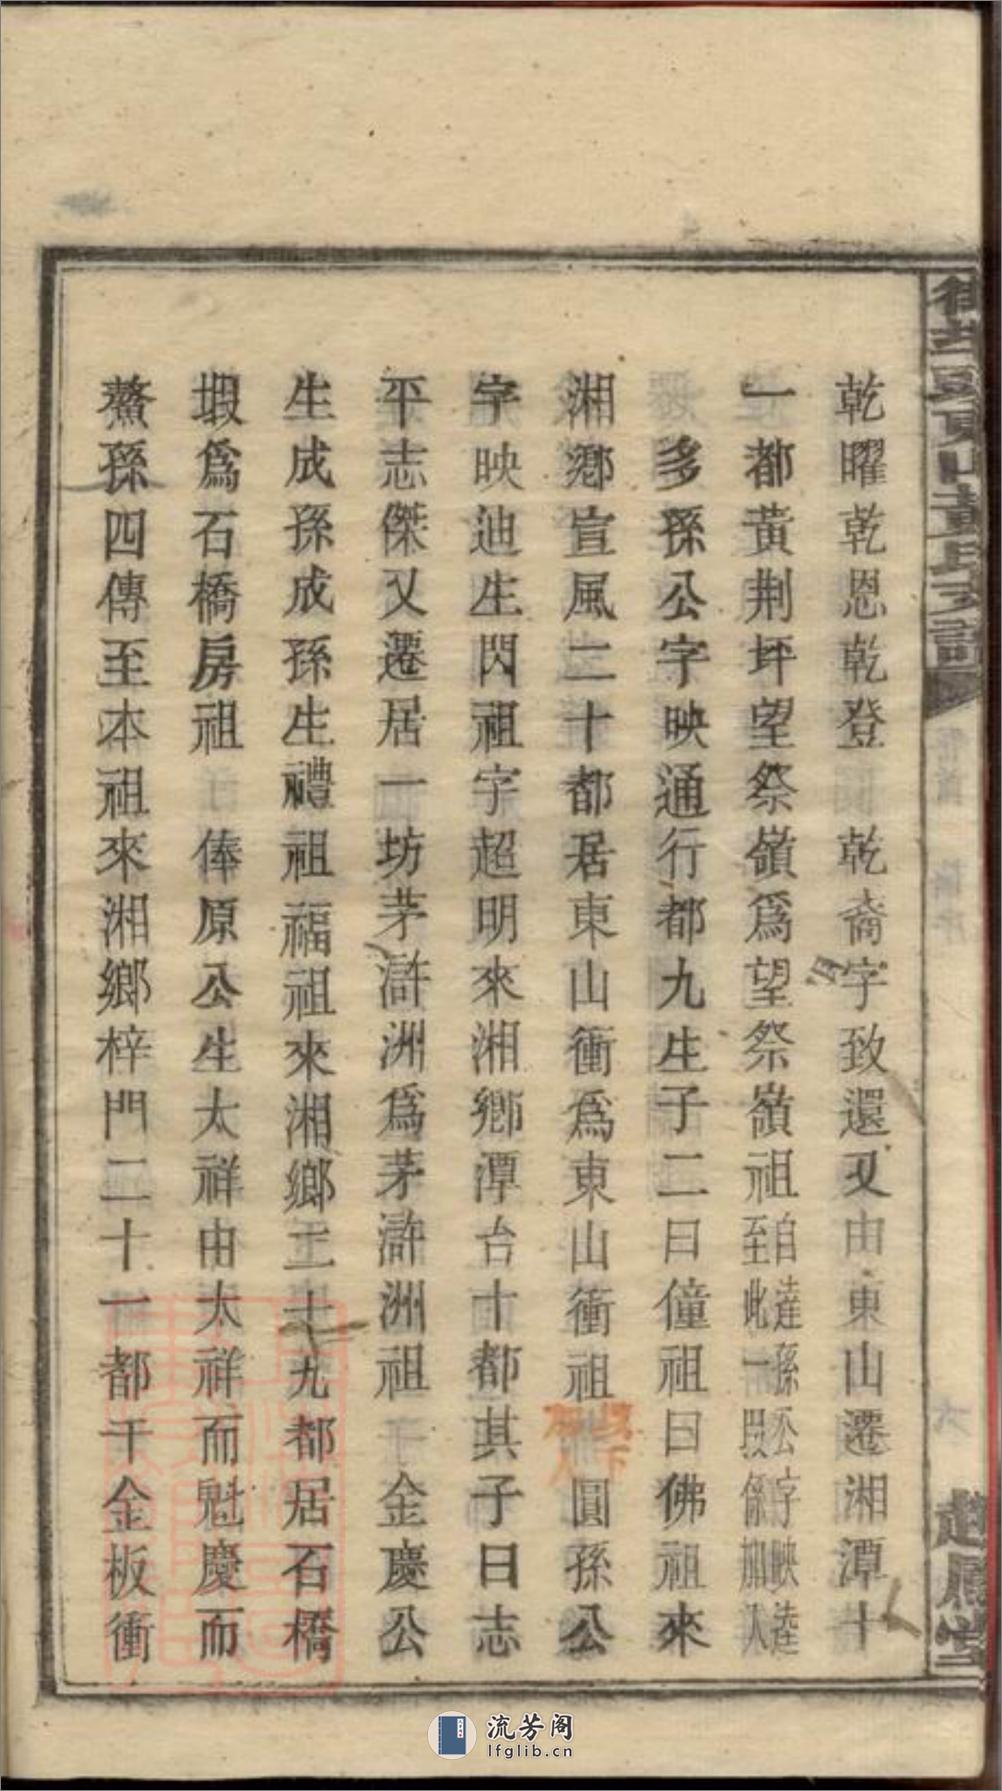 乾曜乾恩乾登 乾裔字致還又由東山遷湘潭十
一都黃荆坪望祭嶺爲望祭嶺祖自達孫公字映逵至此一段係加入
多孫公字映通行都九生子二曰僮祖曰佛祖來
湘鄉宣風二十都居東山衝爲東山衝祖 圓孫公
字映迪生閃祖字超明來湘鄉潭台十都其子曰志
平志傑又遷居一坊茅滸洲爲茅滸洲祖 金慶公
生成孫成孫生禮祖福祖來湘鄉二十九都居石橋
塅爲石橋房祖 俸原公生太祥由太祥而魁慶而
鰲孫四傳至本祖來湘鄉梓門二十一都干金板衝
東山黃氏支譜
卷首
六
趨鳳堂
流芳阁
lfglib.cn